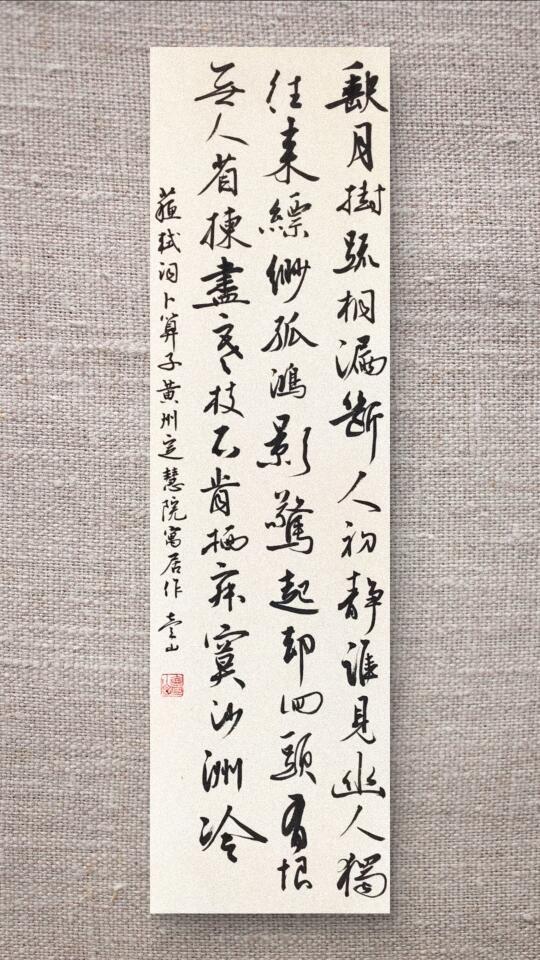 缺月掛疏桐漏斷人初静誰見幽人獨
往來縹緲孤鴻影驚起却回頭有恨
無人省揀盡寒枝不肯栖寂寞沙洲冷
蘇軾詞卜算子黄州定慧院寓居作 山